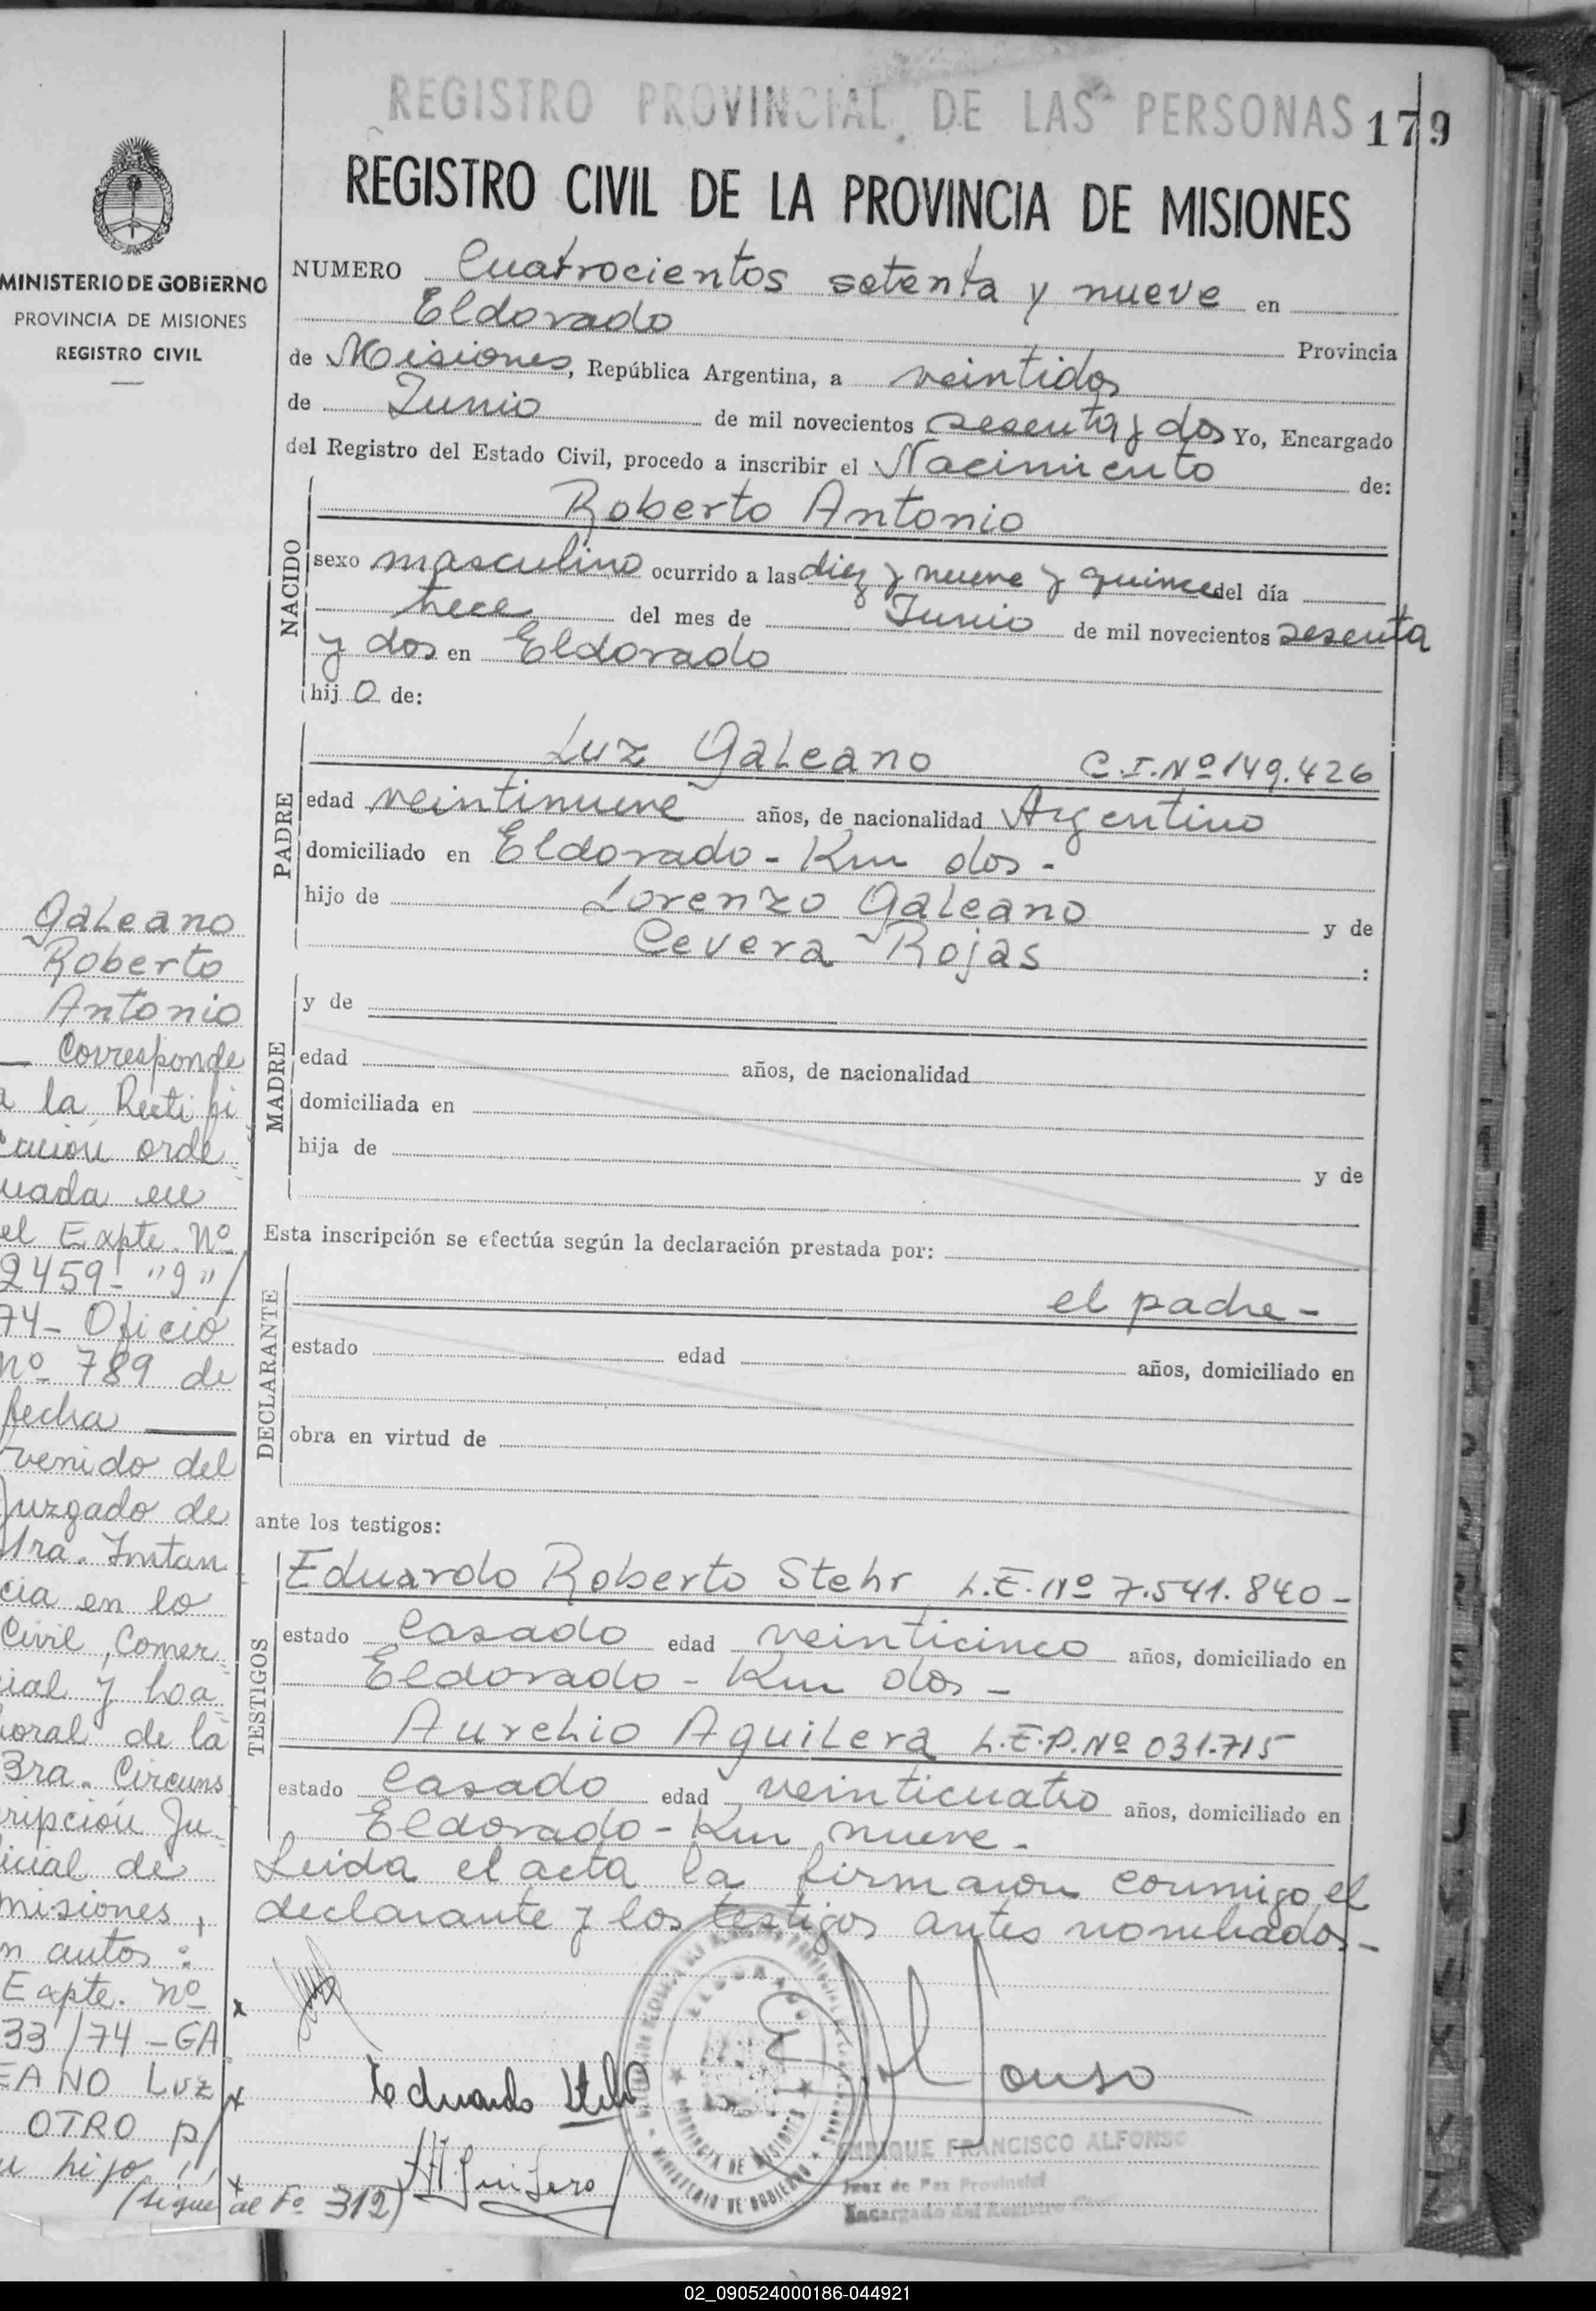 REGISTRO PROVINCIAL DE LAS PERSONAS 179
REGISTRO CIVIL DE LA PROVINCIA DE MISIONES
MINISTERIO DE GOBIERNO
PROVINCIA DE MISIONES
REGISTRO CIVIL
NUMERO Cuatrocientos setenta y nueve en
Eldorado Provincia
de Misiones, República Argentina, a veintidos
de Junio de mil novecientos sesenta y dos Yo, Encargado
del Registro del Estado Civil, procedo a inscribir el Nacimiento de:
NACIDO
Roberto Antonio
sexo masculino ocurrido a las diez y nueve y quince del día
trece del mes de Junio de mil novecientos sesenta
y dos en Eldorado
hij o de:
PADRE
Luz Galeano C.I. Nº 149.426
edad veintinueve años, de nacionalidad Argentino
domiciliado en Eldorado - Km dos -
hijo de Lorenzo Galeano y de
Cevera Rojas :
MADRE
y de
edad años, de nacionalidad
domiciliada en
hija de y de
Esta inscripción se efectúa según la declaración prestada por:
DECLARANTE
el padre -
estado edad años, domiciliado en
obra en virtud de
ante los testigos:
TESTIGOS
Eduardo Roberto Stehr L.E. Nº 7.541.840 -
estado Casado edad veinticinco años, domiciliado en
Eldorado - Km dos -
Aurelio Aguilera L.E.P. Nº 031.715
estado Casado edad veinticuatro años, domiciliado en
Eldorado - Km nueve -
Leida el acta la firmaron conmigo el
declarante y los testigos antes nombrados -
Galeano
Roberto
Antonio
Corresponde
a la Rectifi
cación orde
nada en
el Expte. Nº
2459- "g"/
74- Oficio
nº 789 de
fecha
venido del
Juzgado de
1ra. Instan
cia en lo
Civil, Comer
cial y Loa
boral de la
3ra. Circuns
cripción Ju
icial de
misiones,
n autos:
Expte. nº
33/74 - GA
EANO Luz
OTRO p/
u hijo "
(sigue al Fº 312)
Eduardo Stehr
Alfonso
PROVINCIA DE MISIONES
MINISTERIO DE GOBIERNO
ENRIQUE FRANCISCO ALFONSO
Juez de Paz Provincial
Encargado del Registro Civil
02_090524000186-044921